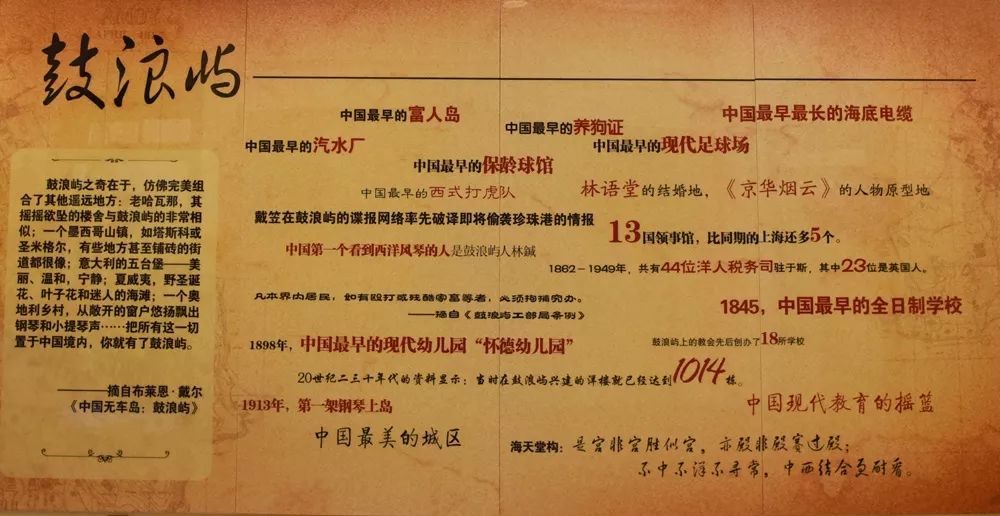 鼓浪屿
中国最早的富人岛
中国最早的养狗证
中国最早最长的海底电缆
中国最早的汽水厂
中国最早的保龄球馆
中国最早的现代足球场
中国最早的西式打虎队
林语堂的结婚地,《京华烟云》的人物原型地
戴笠在鼓浪屿的谍报网络率先破译即将偷袭珍珠港的情报
13国领事馆,比同期的上海还多5个。
中国第一个看到西洋风琴的人是鼓浪屿人林鍼
1862-1949年,共有44位洋人税务司驻于斯,其中23位是英国人。
凡本界内居民,如有殴打或残酷禽畜者,必须拘捕究办。
——摘自《鼓浪屿工部局条例》
1845,中国最早的全日制学校
1898年,中国最早的现代幼儿园“怀德幼儿园”
鼓浪屿上的教会先后创办了18所学校
20世纪二三十年代的资料显示:当时在鼓浪屿兴建的洋楼就已经达到1014栋。
1913年,第一架钢琴上岛
中国现代教育的摇篮
中国最美的城区
海天堂构:是宫非宫胜似宫,亦殿非殿赛过殿;
不中不洋不寻常,中西结合更耐看。
鼓浪屿之奇在于,仿佛完美组
合了其他遥远地方:老哈瓦那,其
摇摇欲坠的楼舍与鼓浪屿的非常相
似;一个墨西哥山镇,如塔斯科或
圣米格尔,有些地方甚至铺砖的街
道都很像;意大利的五台堡——美
丽、温和,宁静;夏威夷,野圣诞
花、叶子花和迷人的海滩;一个奥
地利乡村,从敞开的窗户悠扬飘出
钢琴和小提琴声……把所有这一切
置于中国境内,你就有了鼓浪屿。
——摘自布莱恩·戴尔
《中国无车岛:鼓浪屿》